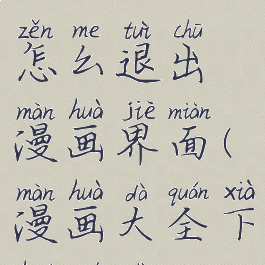 zěn me tuì chū
怎么退出
màn huà jiè miàn
漫画界面(
màn huà dà quán xià
漫画大全下